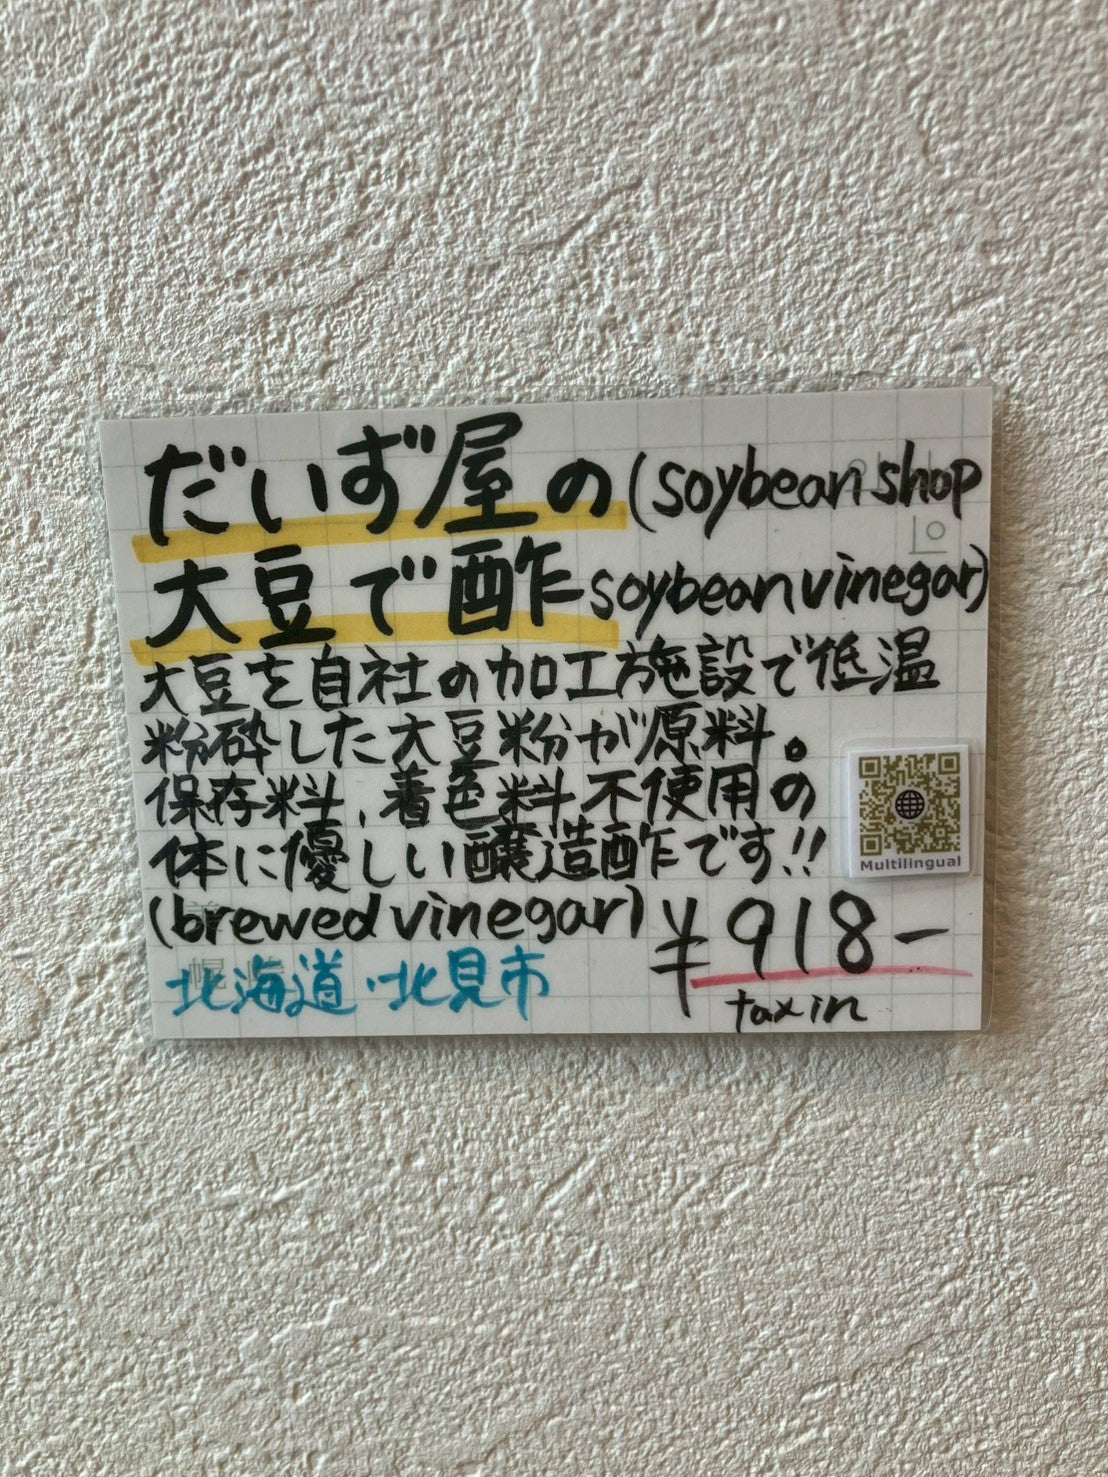 だいず屋の(soybean shop
大豆で酢 soybean vinegar)
大豆を自社の加工施設で低温
粉砕した大豆粉が原料。
保存料、着色料不使用の
体に優しい醸造酢です!!
(brewed vinegar)
¥918-
tax in
北海道・北見市
Multilingual